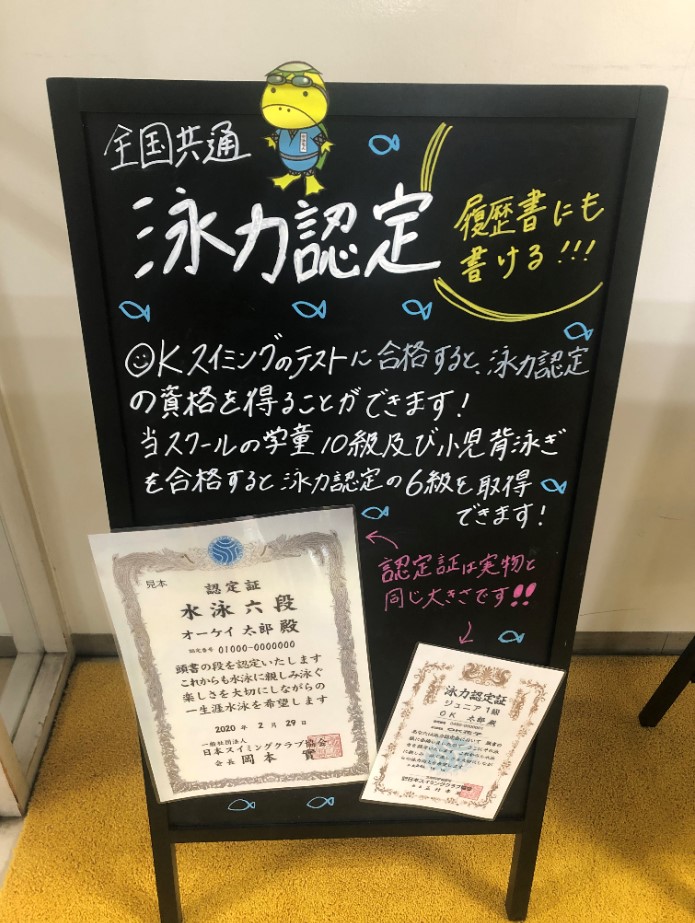 全国共通
泳力認定
履歴書にも
書ける!!!
OKスイミングのテストに合格すると、泳力認定
の資格を得ることができます!
当スクールの学童10級及び小児背泳ぎ
を合格すると泳力認定の6級を取得
できます!
認定証は実物と
同じ大きさです!!
見本
認定証
水泳六段
オーケイ 太郎 殿
認定番号 01000-0000000
頭書の段を認定いたします
これからも水泳に親しみ泳ぐ
楽しさを大切にしながらの
一生涯水泳を希望します
2020 年 2 月 29日
一般社団法人
日本スイミングクラブ協会
会長 岡本 實
泳力認定証
ジュニア 1級
OK 太郎 殿
日本スイミングクラブ協会